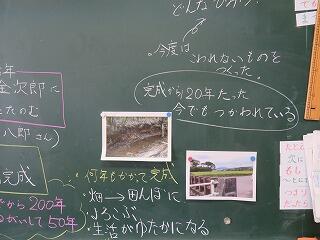 どんな
・今度は
こわれないものを
つくった。
完成から20年たった
今でもつかわれている
年
金次郎に
たのむ
八郎さん)
完成
から200年
して50年
何年もかかって完成
・畑→田んぼに
・よろこぶ
・生活がゆたかになる
たとえ
次に
もし
つまり
だったら